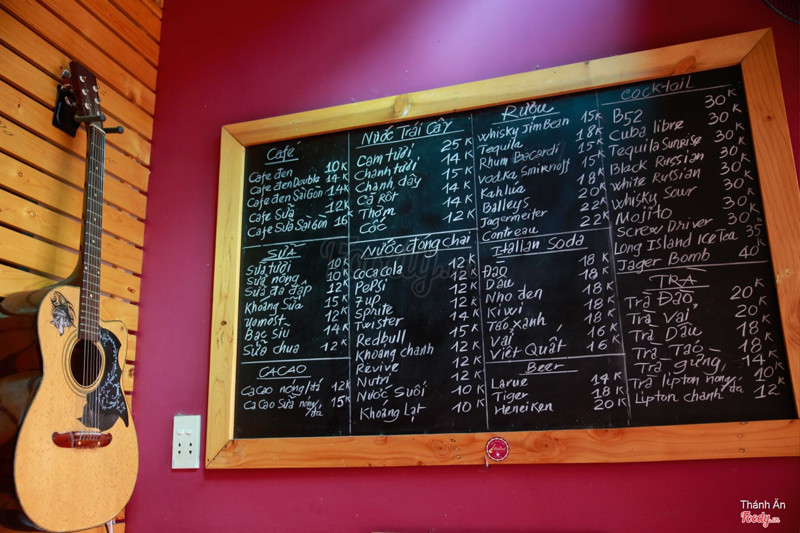 Café
Cafe đen 10K
Cafe đen Double 14K
Cafe đen Sài Gòn 14K
Cafe Sữa 12K
Cafe Sữa Sài Gòn 16K
SỮA
Sữa tươi 10K
Sữa nóng 10K
Sữa đá đập 12K
Khoáng Sữa 15K
Yomost 12K
Bạc sỉu 14K
Sữa chua 12K
CACAO
Cacao nóng/đá 12K
Cacao Sữa nóng/đá 15K
Nước Trái Cây
Cam tươi 25K
Chanh tươi 14K
Chanh dây 15K
Cà Rốt 14K
Thơm 14K
Cóc 12K
Nước đóng chai
Coca Cola 12K
Pepsi 12K
7up 12K
Sprite 12K
Twister 14K
Redbull 15K
Khoáng chanh 12K
Revive 12K
Nutri 12K
Nước Suối 10K
Khoáng lạt 10K
Rượu
Whisky Jim Bean 15K
Tequila 18K
Rhum Bacardi 15K
Vodka Smirnoff 15K
Kahlúa 20K
Balleys 22K
Jagermeiter 22K
Contreau
Itallan Soda
Đào 18K
Dâu 18K
Nho đen 18K
Kiwi 18K
Táo xanh 18K
Vải 16K
Việt Quất 16K
Beer
Larue 14K
Tiger 18K
Heneiken 20K
Cocktail
B52 30K
Cuba libre 30K
Tequila Sunrise 30K
Black Russian 30K
White Russian 30K
Whisky Sour 30K
Mojito 30K
Screw Driver 30K
Long Island Ice Tea 35K
Jager Bomb 40K
TRÀ
Trà Đào 20K
Trà Vải 20K
Trà Dâu 18K
Trà Táo 18K
Trà gừng 14K
Trà lipton nóng/đá 10K
Lipton chanh 12K
Foody.vn
Thánh Ăn
Foody.vn